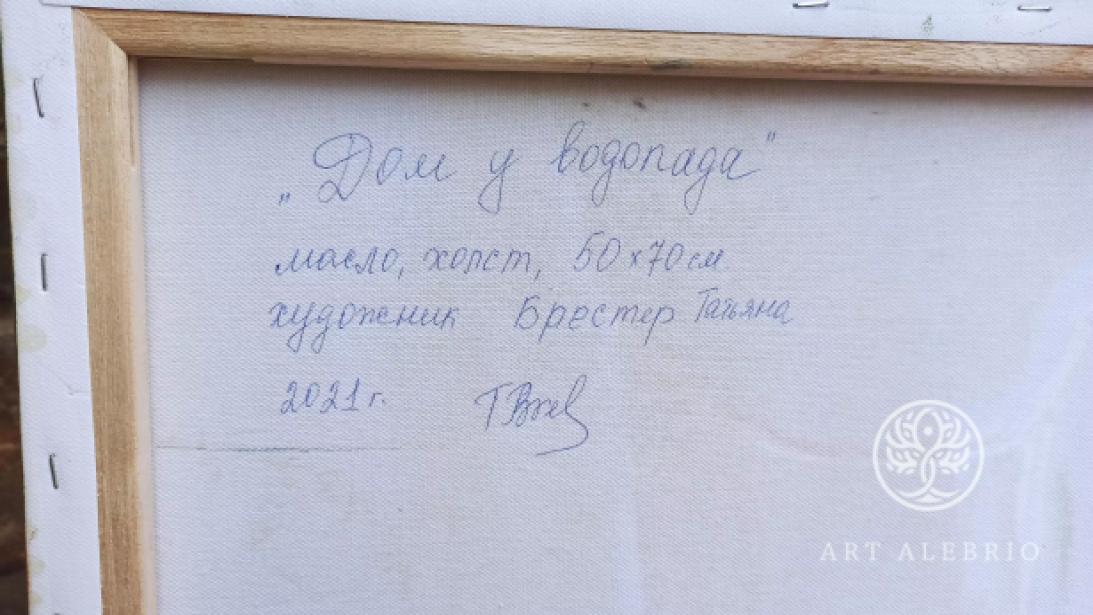 „Дом у водопада"
масло, холст, 50х70см
художник Брестер Татьяна
2021 г.
ART ALEBRIO